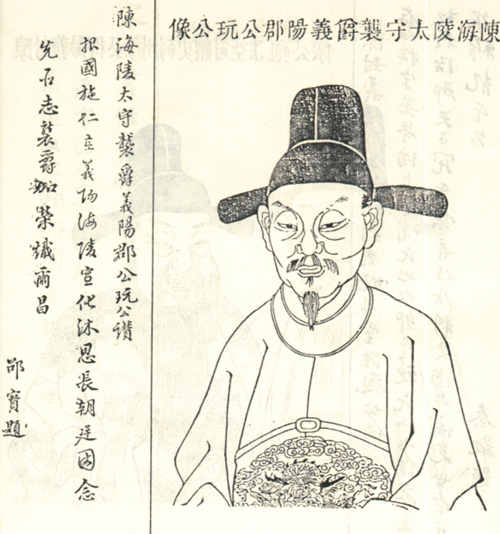 陳海陵太守襲爵義陽郡公玩公像
陳海陵太守襲爵義陽郡公玩公讚
拓國施仁立義陽海陵宣化沐恩長朝廷因念
先君志襲爵加榮熾爾昌
邵寶題